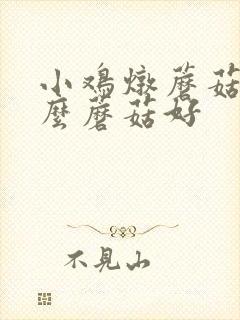 小鸡燉蘑菇
麼蘑菇好
不見山